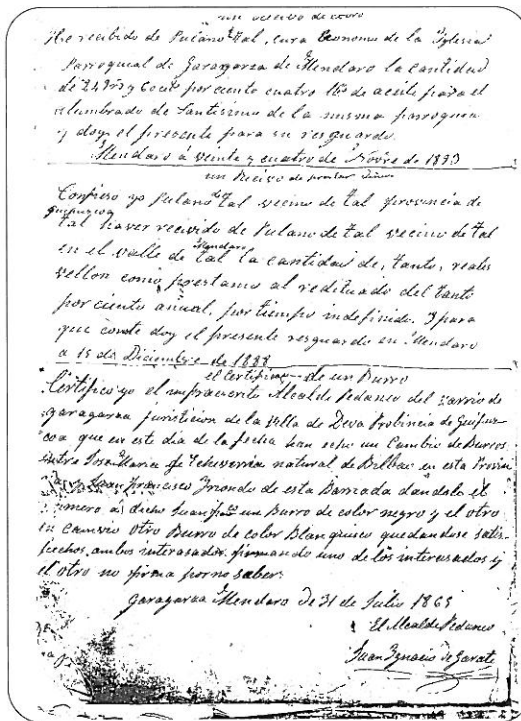 un recivo de cobro
He recibido de Fulano de tal, cura Economo de la Yglesia
Parroquial de Garagarza de Mendaro la cantidad
de 24 por ciento cuatro de aceite para el
alumbrado de Santisimo de la misma parroquia
y doy el presente para su resguardo.
Mendaro á veinte y cuatro de Novre de 1893
un Recivo de prestar dinero
Confieso yo Fulano de tal vecino de tal provincia de
guipuzcoa
tal haver recivido de Fulano de tal vecino de tal
Mendaro
en el valle de tal la cantidad de, tanto, reales
vellon como prestamo al redituado del tanto
por ciento anual, por tiempo indefinido. Y para
que conste doy el presente resguardo en Mendaro
a 15 de Diciembre de 1888
el Certifico de un Burro
Certifico yo el infraescrito Alcalde Pedaneo del varrio de
Garagarza juristicion de la Villa de Deva Probincia de Guipuz-
coa que en este dia de la fecha han echo un Cambio de Burros
entre Jose Maria Echeverria natural de Bilbao en esta Provin
Juan Francisco Yriondo de esta Barriada dandole el
primero a dicho Juan Fco un Burro de color negro y el otro
en camvio otro Burro de color Blanquisco quedandose satis-
fechos, ambos interasados firmando uno de los interasados y
el otro no firma por no saber.
Garagarza Mendaro de 31 de Julio 1865
El Alcalde Pedaneo
Juan Ygnacio de Garate